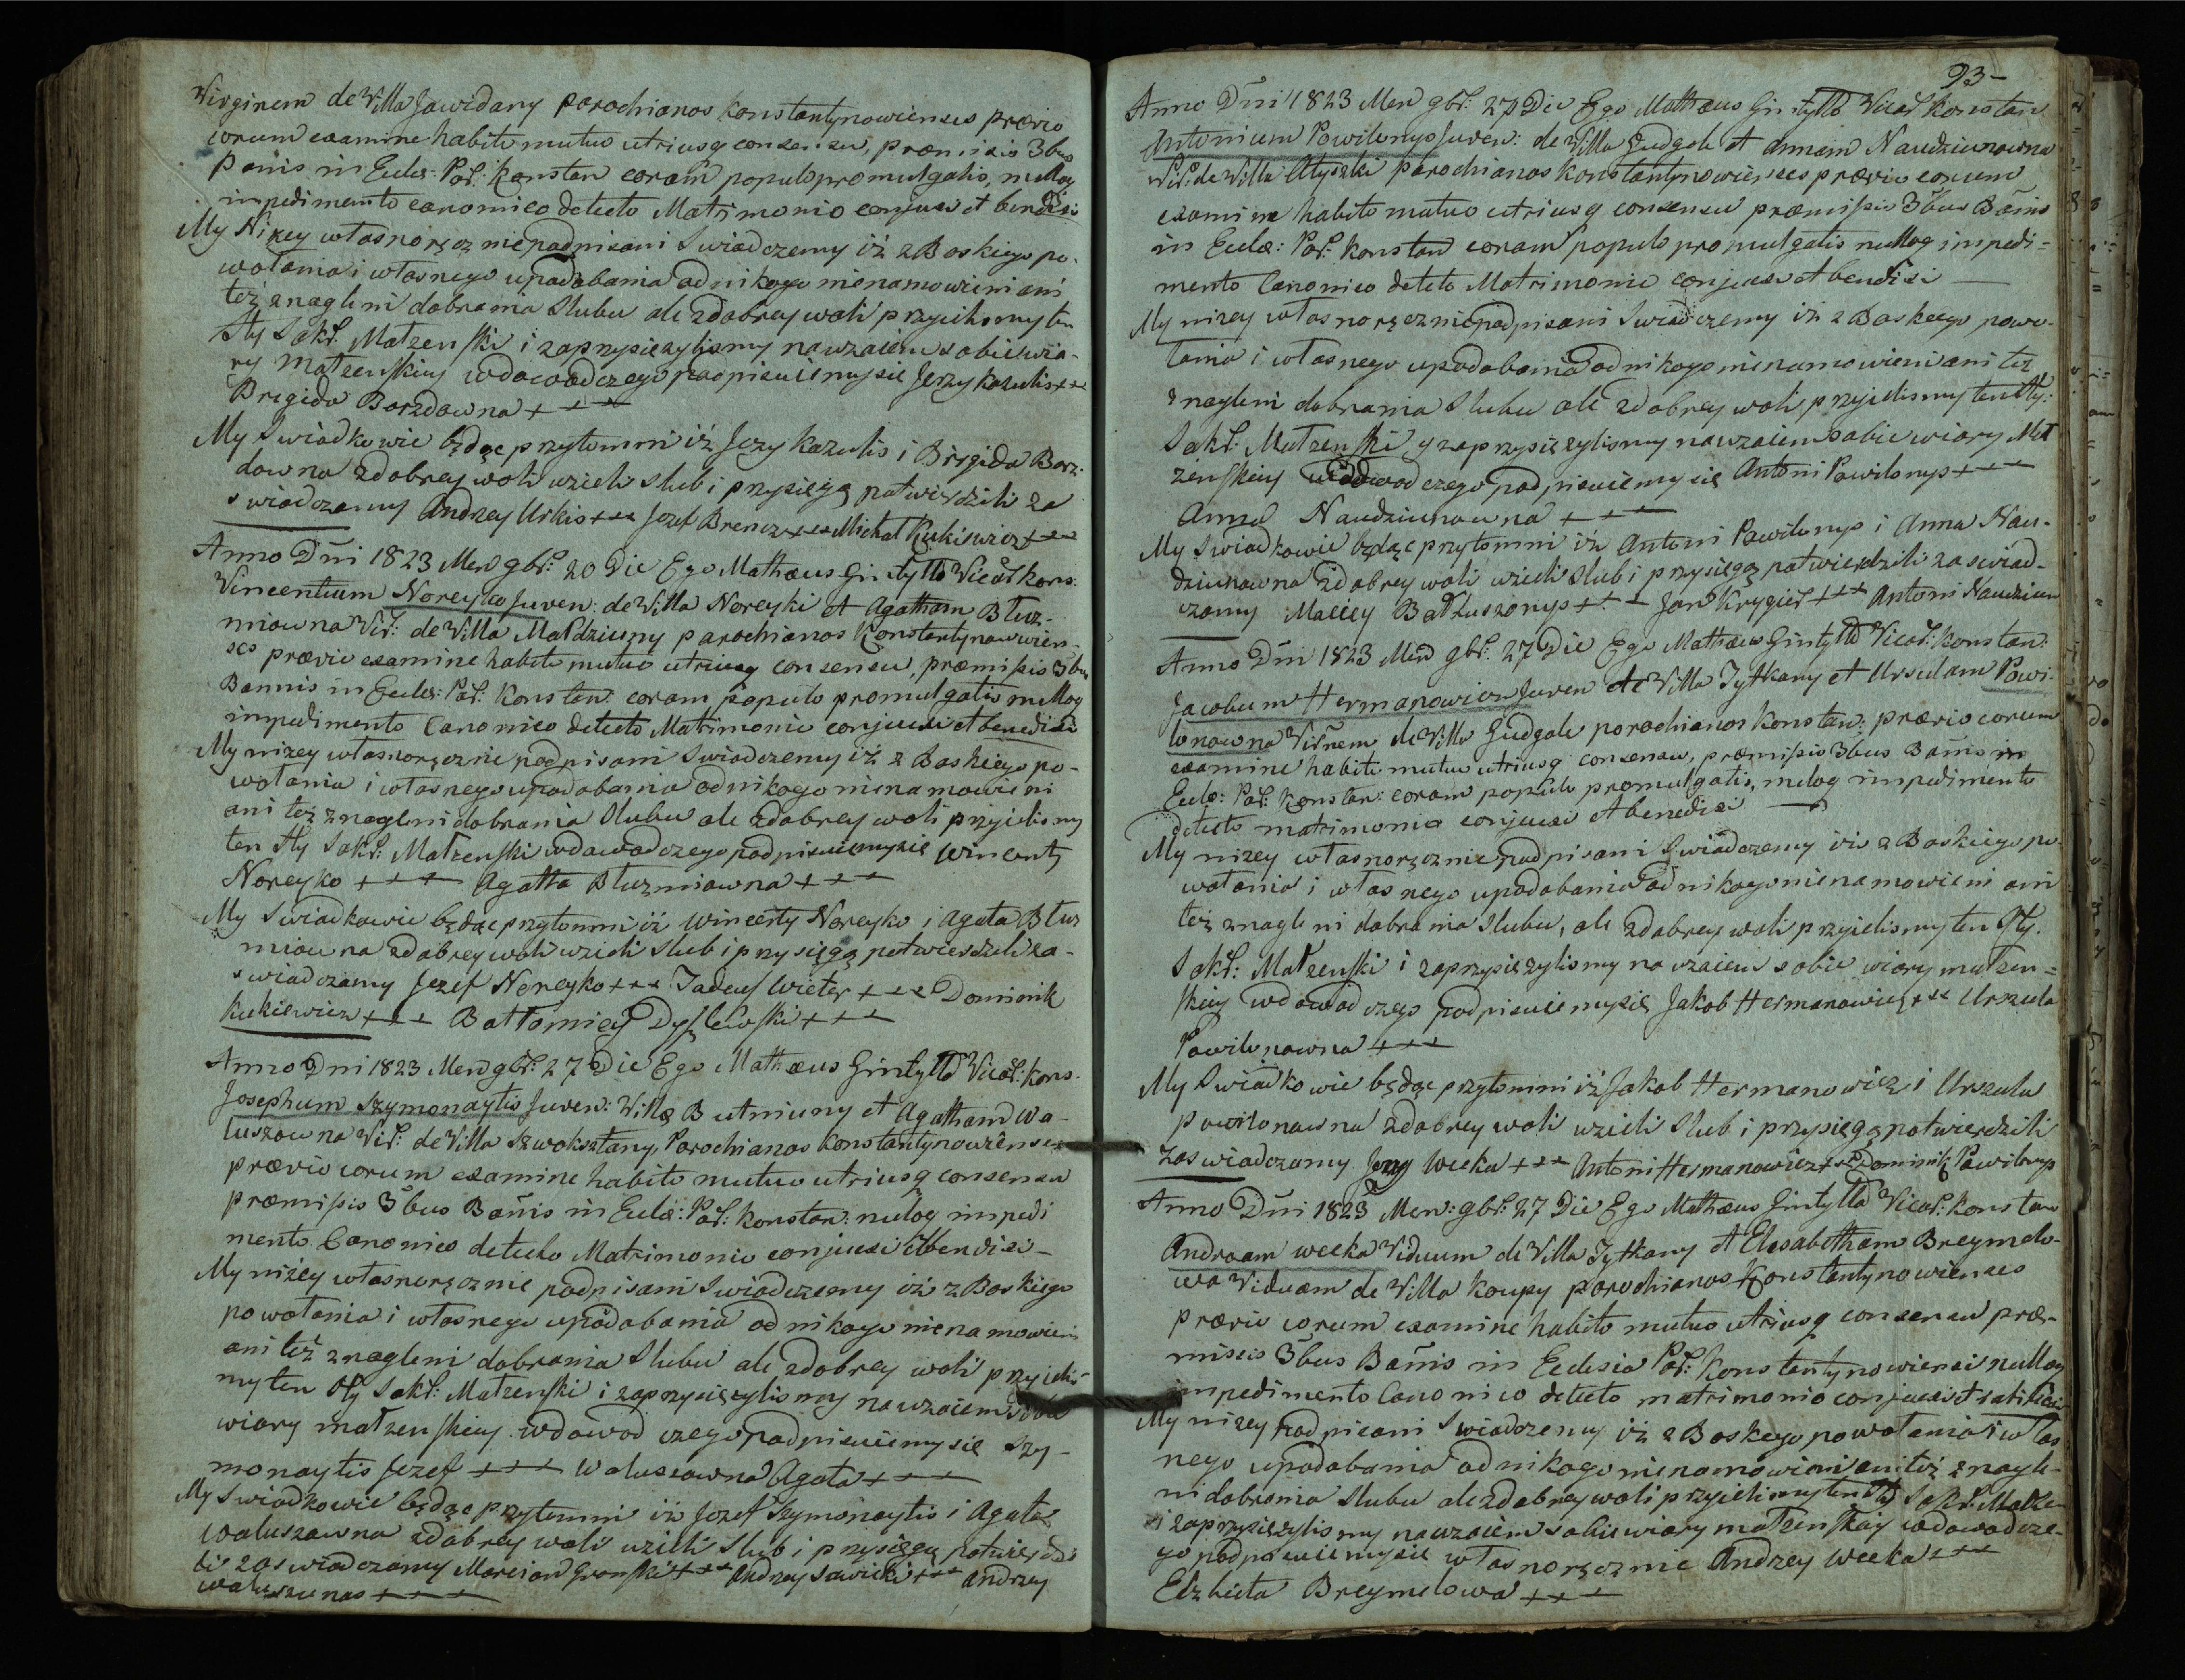 Virginem de Villa Jawidany Parochianos Konstantynowienses prævio
eorum examine habito mutuo utriusq consensu, præmissis 3bus
Banis in Eccles: Par: Konstan coram populo promulgatis, nulloq
impedimento canonico detecto Matrimonio conjunxi et benedixi
My Niżey własnoręcznie podpisani Swiadczemy iż z Boskiego po-
wołania i własnego upodobania od nikogo nienamowieni ani
też znagleni do brania Slubu ale z dobrey woli przyieliśmy ten
Sty Sakr. Małżenski i zaprzysięzylismy nawzaiem sobie wia-
ry Małżenskiey w dowod czego podpisuiemy sie Jerzy Kazulis +++
Brigida Borzdowna +++
My Swiadkowie będąc przytomni iż Jerzy Kazulis i Brigida Borz-
downa z dobrey woli wzieli Slub i przysięgą potwierdzili za
swiadczamy Andrzey Urkis +++ Jozef Brencz +++ Michał Kukiewicz +++
Anno Dni 1823 Men 9br: 20 Die Ego Mathæus Gintyłło Vicar Kons:
Vincentium Noreyko Juven: de Villa Noreyki et Agatham Błuz-
miowna Vir: de Villa Małdziuny parochianos Konstantynowien-
ses prævio examine habito mutuo utriusq consensu, præmissis 3bus
Bannis in Eccles: Par: Konstan: coram populo promulgatis nulloq
impedimento Canonico detecto Matrimonio conjunxi et benedixi
My niżey własnoręcznie podpisani Swiadczemy iż z Boskiego po-
wołania i własnego upodobania od nikogo nienamowieni
ani też znagleni do brania Slubu ale z dobrey woli przyielismy
ten Sty Sakr: Małżenski w dowod czego podpisuiemy się Wincenty
Noreyko +++ Agatta Błuzmiowna +++
My Swiadkowie będąc przytomni iż Wincenty Noreyko i Agata Błuz
miowna z dobrey woli wzieli Slub i przysięgą potwierdzili za-
swiadczamy Jozef Noreyko +++ Tadeusz Wieter +++ Dominik
Kukiewicz +++ Bałtomiey +++
Anno Dni 1823 Men 9br: 27 Die Ego Mathæus Gintyłło Vicar: Kons-
Josephum Szymonaytis Juven: Villæ Butniuny et Agatham Wa-
luszowna Vir: de Villa Szwoksztany, Parochianos Konstantynowienses
prævio eorum examine habito mutuo utriusq consensu
præmissis 3bus Banis in Eccle: Par: Konstan: nuloq impedi
mento Canonico detecto Matrimonio conjunxi et bendixi-
My niżey własnoręcznie podpisani Swiadczemy iż z Boskiego
powołania i własnego upodobania od nikogo nienamowieni
ani też znagleni do brania Slubu ale z dobrey woli przyielis
my ten Sty Sakr: Małżenski i zaprzysięzylismy nawzaiem sobie
wiary małżenskiey w dowod czego podpisuiemy sie Szy-
monaytis Jozef +++ Waluszowna Agata +++
My Swiadkowie będąc przytomni iż Jozef Szymonaytis i Agata
Waluszowna z dobrey woli wzieli Slub i przysięgą potwierdzi
li zaswiadczamy Marcian Gronski +++ Andrzey Sawicki +++ Andrzey
Waluszunas +++
93-
Anno Dni 1823 Men 9br: 27 Die Ego Mathæus Gintyłło Vicar Konstan
Antonium Powilonys Juven: de Villa Gudgale et Annam Naudziunowna
Vir: de Villa Ałyszki Parochianos Konstantynowienses prævio eorum
examine habito mutuo utriusq consensu præmissis 3bus Banis
in Eccle: Par: Konstan coram populo promulgatis nulloq impedi=
mento Canonico detecto Matrimonio conjunxi et bendixi
My niżey własnoręcznie podpisani Swiadczemy iż z Boskiego powo-
łania i własnego upodobania od nikogo nienamowieni ani też
znagleni do brania Slubu ale z dobrey woli przyielismy ten Sty:
Sakr: Małżenski y zaprzysięzylismy nawzaiem sobie wiary Mał
żenskiey w dowod czego podpisuiemy się Antoni Powilonys +++
Anna Naudziunowna +++
My Swiadkowie będąc przytomni iż Antoni Powilonys i Anna Nau-
dziunowna z dobrey woli wzieli Slub i przysięgą potwierdzili zaswiad-
czamy Maciey Bałtuszonys +++ Jan Krygier +++ Antoni Naudziun
Anno Dni 1823 Men 9br: 27 Die Ego Mathæus Gintyłło Vicar: Konstan:
Jacobum Hermanowicz Juven de Villa Jytkany et Ursulam Powi-
lonowna Virnem de Villa Gudgale parochianos Konstan: prævio eorum
examine habito mutuo utriusq consensu, præmissis 3bus Banis in
Eccle: Par: Konstan: coram populo promulgatis, nuloq impedimento
detecto matrimonio conjunxi et benedixi
My niżey własnoręcznie podpisani Swiadczemy iż z Boskiego po-
wołania i własnego upodobania od nikogo nienamowieni ani
też znagleni do brania Slubu, ale z dobrey woli przyielismy ten Sty.
Sakr: Małżenski i zaprzysięzylismy nawzaiem sobie wiary małżen=
skiey w dowod czego podpisuiemy się Jakob Hermanowicz +++ Urszula
Powilonowna +++
My Swiadkowie będąc przytomni iż Jakob Hermanowicz i Urszula
Powilonowna z dobrey woli wzieli Slub i przysięgą potwierdzili
zaswiadczamy Jerzy Weeka +++ Antoni Hermanowicz +++ Dominik Powilonys
Anno Dni 1823 Men: 9br: 27 Die Ego Mathæus Gintyłło Vicar: Konstan
Andræam Weeka Viduum de Villa Jytkany et Elesabetham Breymelo-
wa Viduam de Villa Koupy parochianos Konstantynowienses
prævio eorum examine habito mutuo utriusq consensu præ-
missis 3bus Banis in Eclesia Par: Konstantynowiensi nulloq
impedimento Canonico detecto matrimonio conjunxi et
My niżey podpisani Swiadczemy iż z Boskego powołania i włas
nego upodobania od nikogo nienamowieni ani też znagle-
ni do brania Slubu ale z dobrey woli przyielismy ten Sty Sakr: Małżen
i zaprzysięzylismy nawzaiem sobie wiary małżenskiey w dowod cze-
go podpisuiemy sie własnoręcznie Andrzey Weeka +++
Elzbieta Breymelowa +++